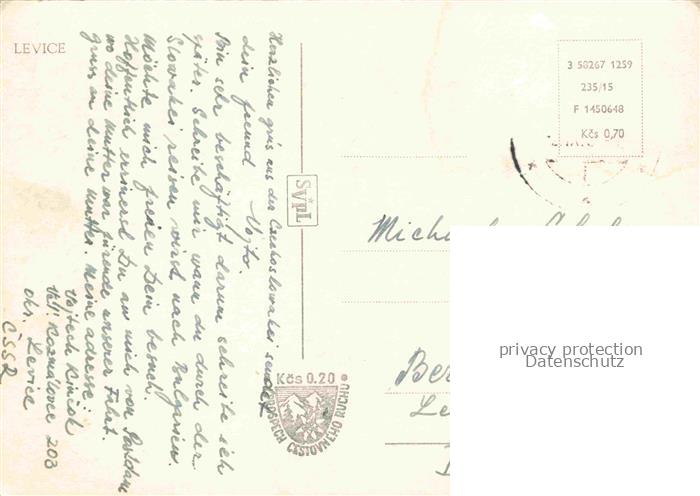 LEVICE
Herzlichen grus aus der Czechoslowakei sendet
dein freund Vojto.
Bin sehr beschäftigt darum schreibe ich
später. Schreibe mir wann du durch der
Slowakei reisen wirst nach Bulgarien.
Möchte mich freuen Dein besuch.
Hoffentlich erinnerst Du an mich von Potsdam
wo deine Mutter war fürende unserer Fahrt.
Grus an deine Mutter. Meine adresse:
Vojtech
Kozmálovce 203
okr. Levice
ČSSR
SVPL
3 58267 1259
235/15
F 1450648
Kčs 0,70
Kčs 0.20
ÚSPECH CESTOVNÉHO RUCHU
privacy protection
Datenschutz